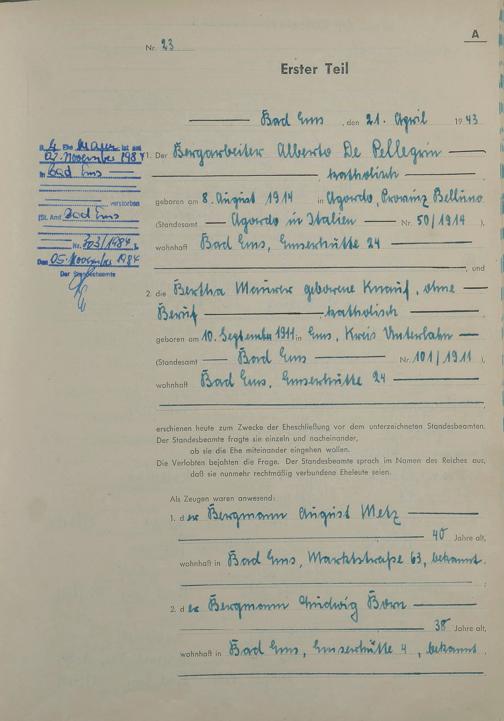 A
Nr. 23
Erster Teil
Bad Ems, den 21. April 1943
1. Der Bergarbeiter Alberto De Pellegrin
katholisch
geboren am 8. August 1914 in Agordo, Provinz Belluno
(Standesamt Agordo in Italien Nr. 50/1914),
wohnhaft Bad Ems, Emserhütte 24
, und
2. die Bertha Maurer geborene Knauf, ohne
Beruf katholisch
geboren am 10. September 1911 in Ems, Kreis Unterlahn
(Standesamt Bad Ems Nr. 101/1911),
wohnhaft Bad Ems, Emserhütte 24
erschienen heute zum Zwecke der Eheschließung vor dem unterzeichneten Standesbeamten.
Der Standesbeamte fragte sie einzeln und nacheinander,
ob sie die Ehe miteinander eingehen wollen.
Die Verlobten bejahten die Frage. Der Standesbeamte sprach im Namen des Reiches aus,
daß sie nunmehr rechtmäßig verbundene Eheleute seien.
Als Zeugen waren anwesend:
1. der Bergmann August Metz
40 Jahre alt,
wohnhaft in Bad Ems, Marktstraße 63, bekannt.
2. der Bergmann Ludwig Born
38 Jahre alt,
wohnhaft in Bad Ems, Emserhütte 4, bekannt.
Ehe ist am
02. November 1984
in Bad Ems
verstorben
(St. Amt Bad Ems
Nr. 303/1984).
Den 05. November 1984
Der Standesbeamte